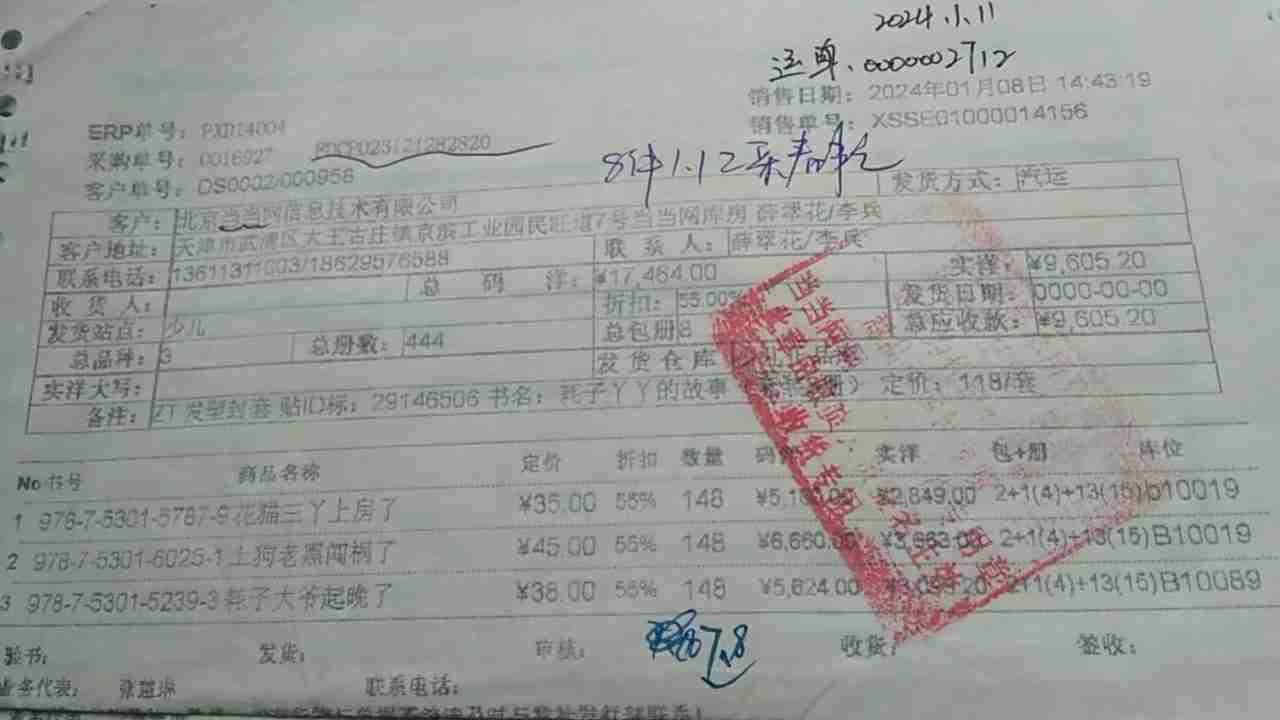 2024.1.11
运单.0000002712
销售日期：2024年01月08日 14:43:19
销售单号：XSSE01000014156
ERP单号：PXD14004
采购单号：0016927
客户单号：DS0002/000958
8件1.12
发货方式：汽运
客户：北京当当网信息技术有限公司
客户地址：天津市武清区大王古庄镇京滨工业园民旺道7号当当网库房 薛翠花/李兵
联系电话：13611311003/18629576588
联 系 人：薛翠花/李兵
收 货 人：
总 码 洋：¥17,464.00
实洋：¥9,605.20
发货站点：少儿
折扣：55.00%
发货日期：0000-00-00
总品种：3
总册数：444
总包册8
总应收款：¥9,605.20
实洋大写：
发 货 仓 库
备注：ZT 发塑封套 贴ID标：29146506 书名：耗子丫丫的故事 定价：118/套
No 书号 商品名称 定价 折扣 数量 码 实洋 包+册 库位
1 978-7-5301-5787-9 花猫三丫上房了 ¥35.00 55% 148 ¥2,849.00 2+1(4)+13(15) b10019
2 978-7-5301-6025-1 土狗老黑闯祸了 ¥45.00 55% 148 ¥6,660.00 ¥3,663.00 2+1(4)+13(15) B10019
3 978-7-5301-5239-3 耗子大爷起晚了 ¥38.00 55% 148 ¥5,624.00 2+1(4)+13(15) B10089
验书：
发货：
审核：
收货：
签收：
业务代表：
联系电话：